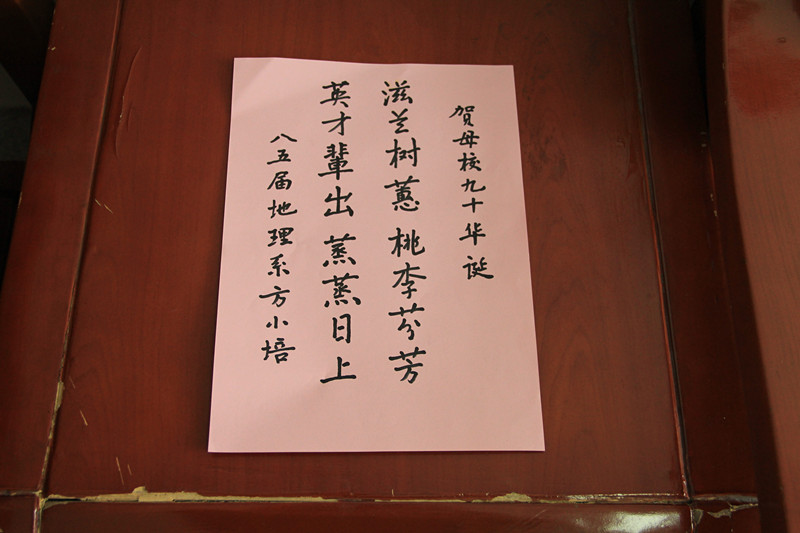 贺母校九十华诞
滋兰树蕙 桃李芬芳
英才輩出 蒸蒸日上
八五届地理系方小培